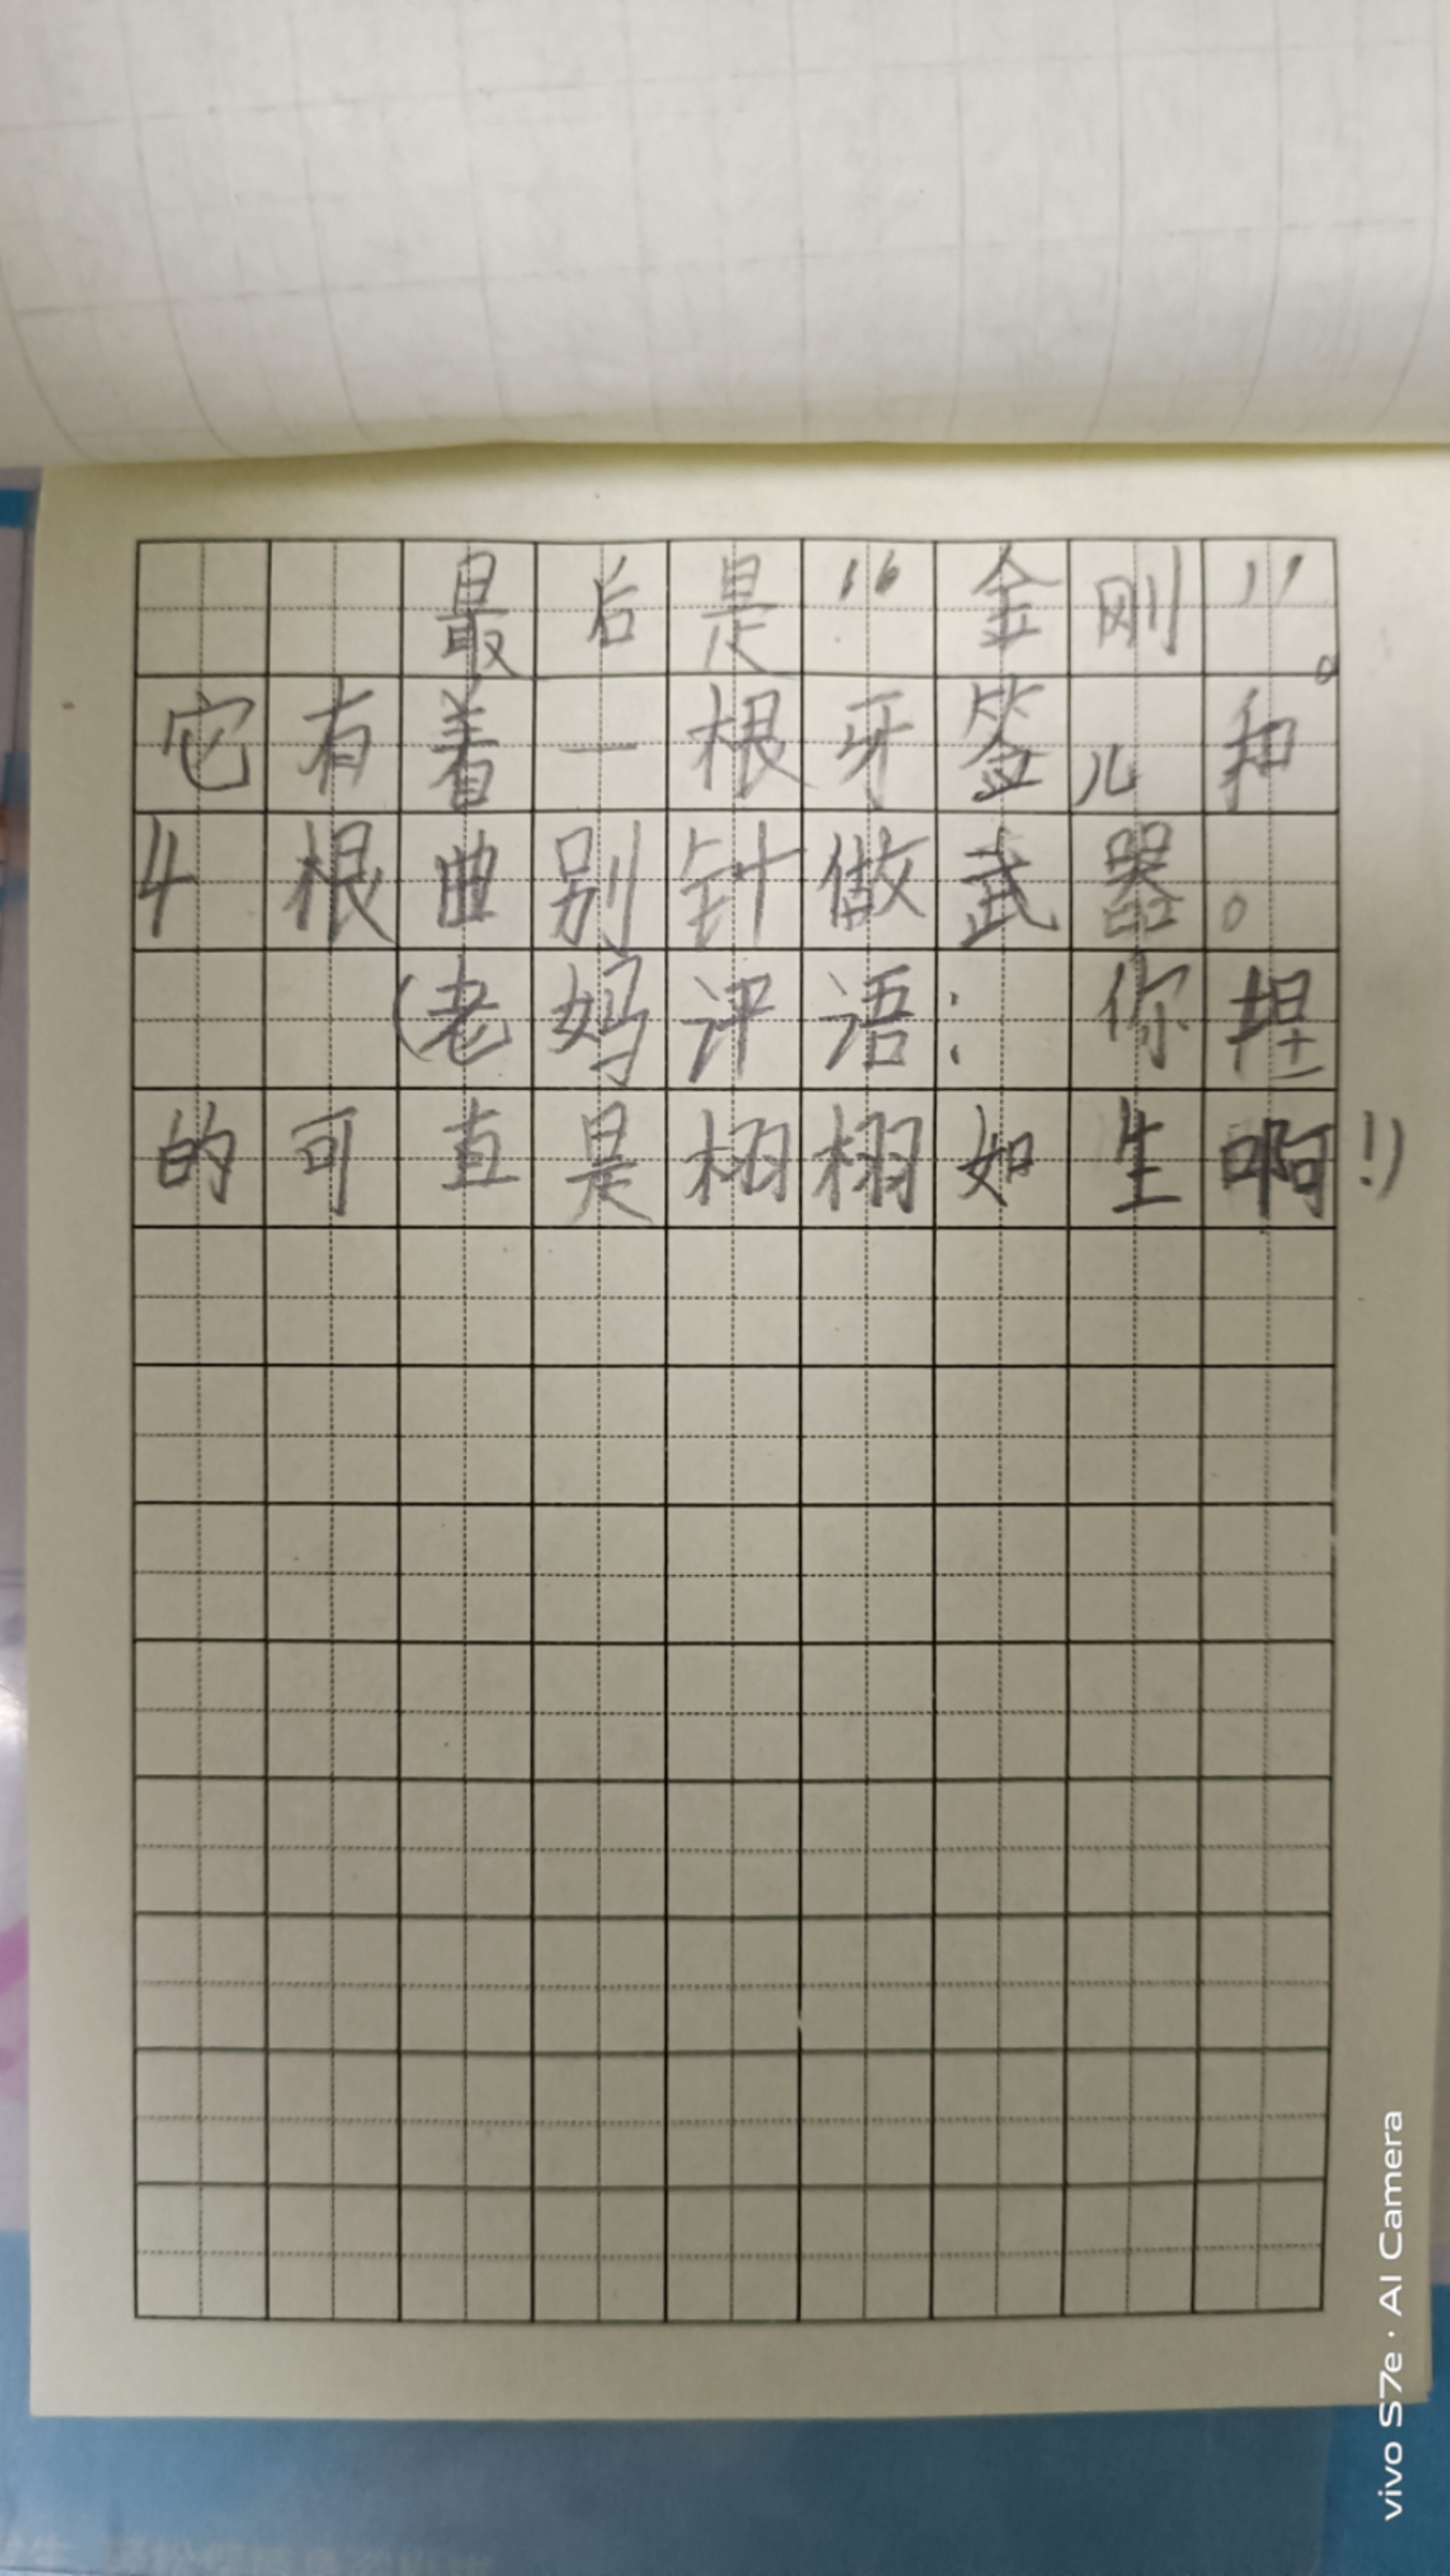 最后是“金刚”。
它有着一根牙签儿和
4根曲别针做武器。
(老妈评语:你捏
的可直是栩栩如生啊!)
vivo S7e · AI Camera